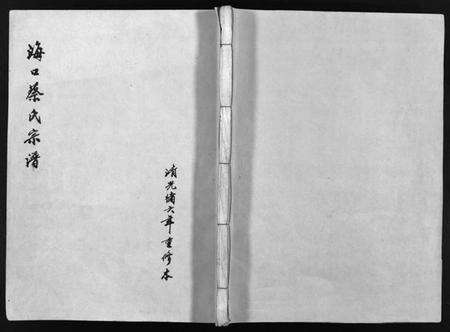 海口蔡氏宗谱
清光绪六年重修本